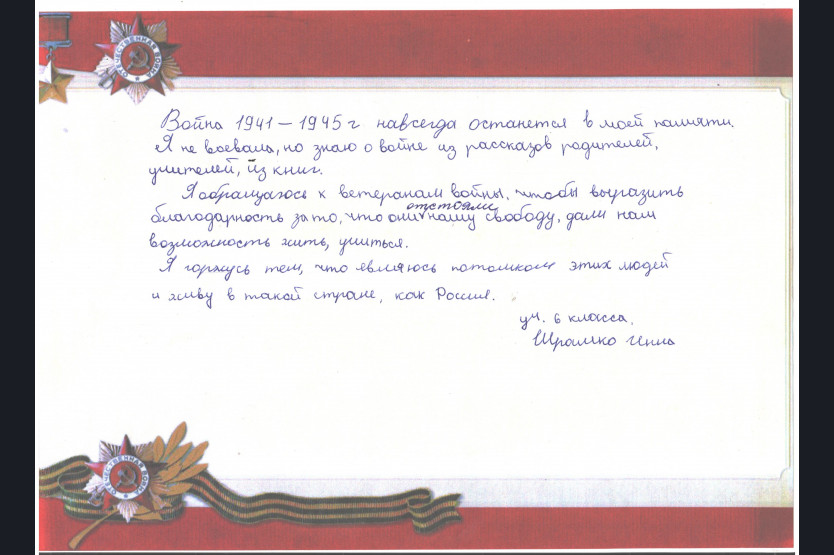 Война 1941 – 1945 г навсегда останется в моей памяти.
Я не воевала, но знаю о войне из рассказов родителей,
учителей, из книг.
Я обращаюсь к ветеранам войны, чтобы выразить
благодарность за то, что они отстояли нашу свободу, дали нам
возможность жить, учиться.
Я горжусь тем, что являюсь потомком этих людей
и живу в такой стране, как Россия.
уч. 6 класса.
Шрамко Инна
ОТЕЧЕСТВЕННАЯ ВОЙНА
ОТЕЧЕСТВЕННАЯ ВОЙНА